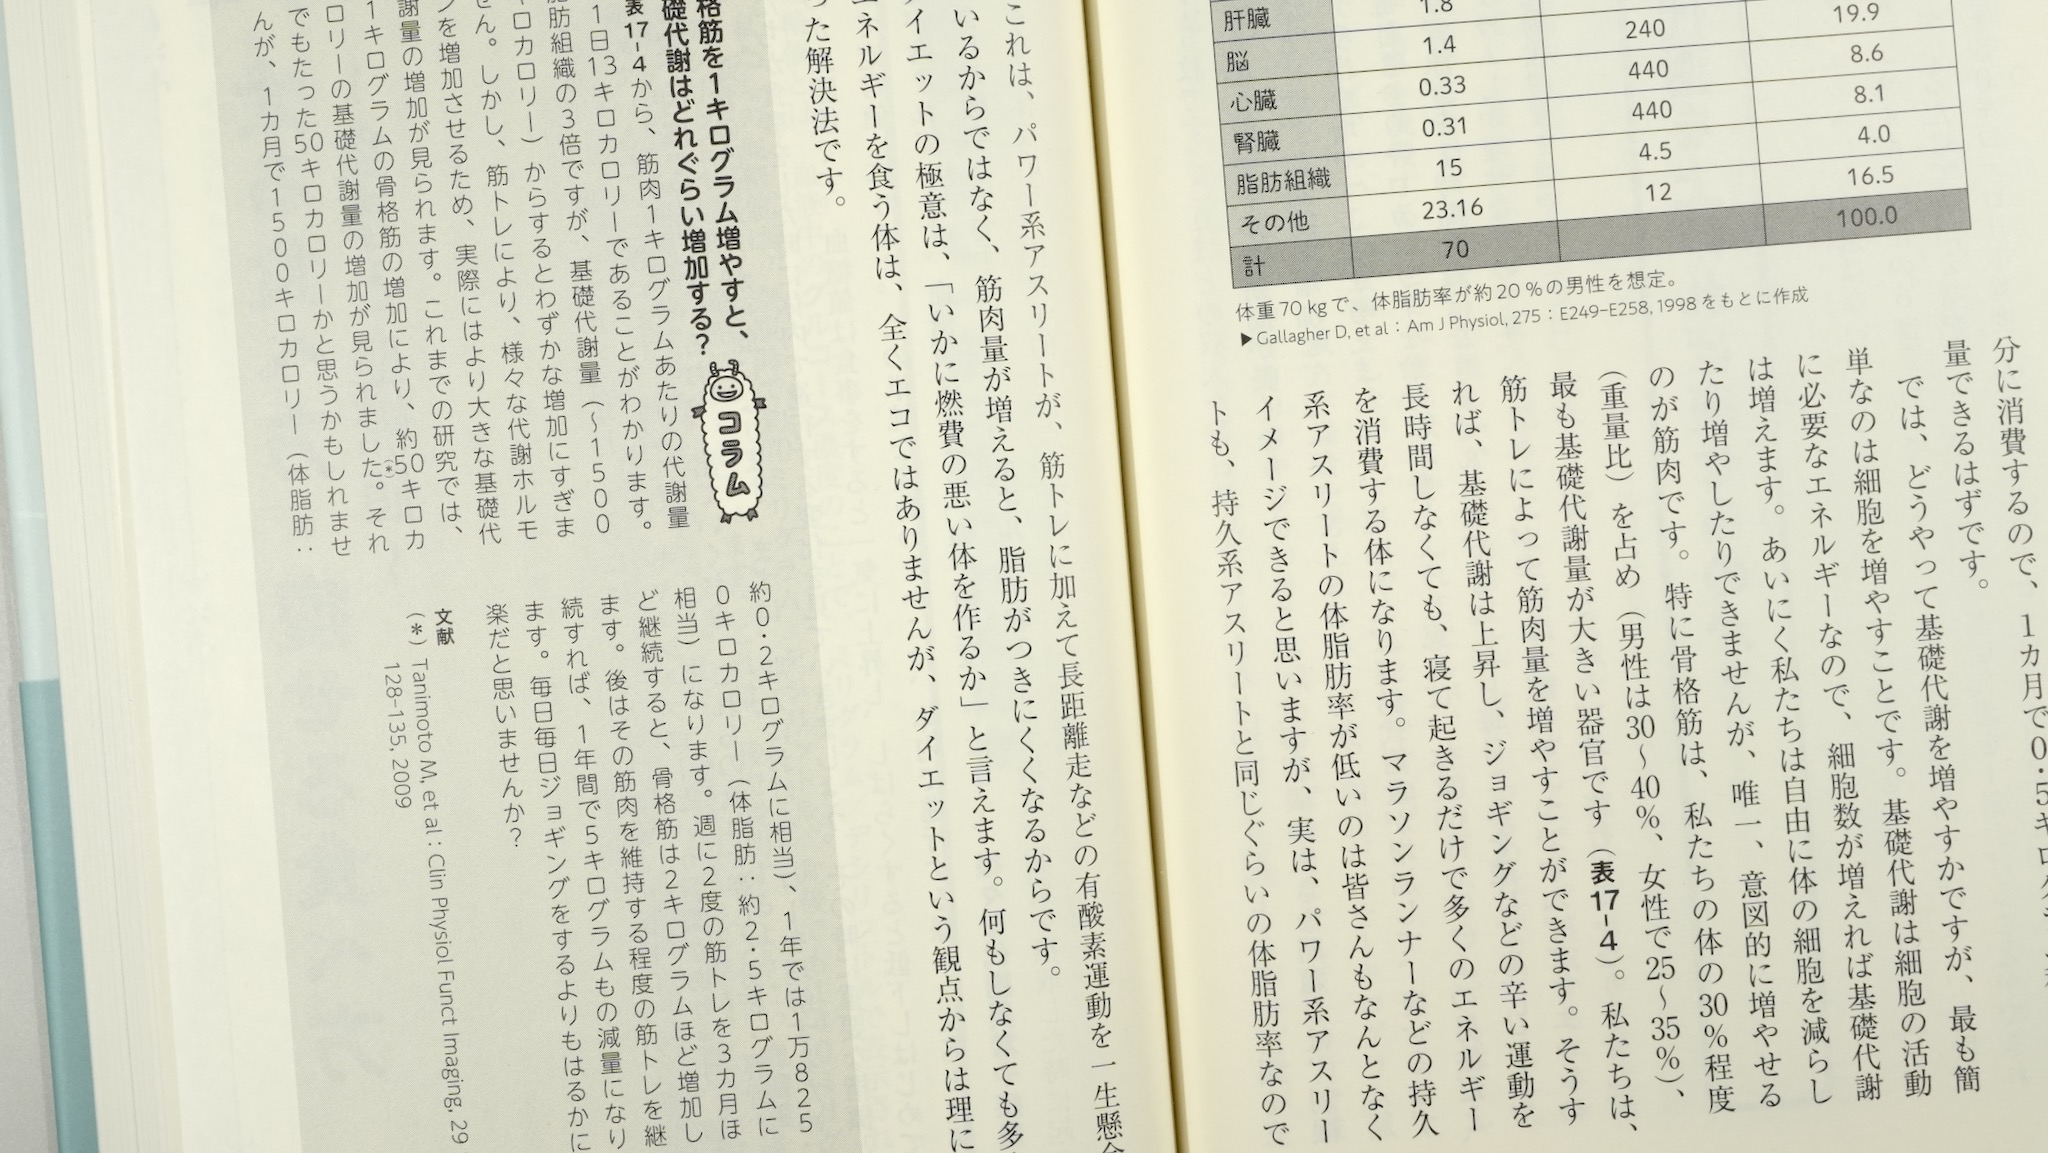 肝臓 1.8
脳 1.4 240 19.9
心臓 0.33 440 8.6
腎臓 0.31 440 8.1
脂肪組織 15 4.5 4.0
その他 23.16 12 16.5
計 70 100.0
体重70kgで、体脂肪率が約20%の男性を想定。
▶Gallagher D, et al：Am J Physiol, 275：E249-E258, 1998をもとに作成
分に消費するので、1カ月で0.5キログラム
量できるはずです。
では、どうやって基礎代謝を増やすかですが、最も簡
単なのは細胞を増やすことです。基礎代謝は細胞の活動
に必要なエネルギーなので、細胞数が増えれば基礎代謝
は増えます。あいにく私たちは自由に体の細胞を減らし
たり増やしたりできませんが、唯一、意図的に増やせる
のが筋肉です。特に骨格筋は、私たちの体の30％程度
（重量比）を占め（男性は30〜40％、女性で25〜35％）、
最も基礎代謝量が大きい器官です（表17-4）。私たちは、
筋トレによって筋肉量を増やすことができます。そうす
れば、基礎代謝は上昇し、ジョギングなどの辛い運動を
長時間しなくても、寝て起きるだけで多くのエネルギー
を消費する体になります。マラソンランナーなどの持久
系アスリートの体脂肪率が低いのは皆さんもなんとなく
イメージできると思いますが、実は、パワー系アスリー
トも、持久系アスリートと同じぐらいの体脂肪率なので
これは、パワー系アスリートが、筋トレに加えて長距離走などの有酸素運動を一生懸命
いるからではなく、筋肉量が増えると、脂肪がつきにくくなるからです。
イエットの極意は、「いかに燃費の悪い体を作るか」と言えます。何もしなくても多
エネルギーを食う体は、全くエコではありませんが、ダイエットという観点からは理に
った解決法です。
格筋を1キログラム増やすと、
礎代謝はどれぐらい増加する？
コラム
表17-4から、筋肉1キログラムあたりの代謝量
1日13キロカロリーであることがわかります。
脂肪組織の3倍ですが、基礎代謝量（〜1500
キロカロリー）からするとわずかな増加にすぎま
せん。しかし、筋トレにより、様々な代謝ホルモ
ンを増加させるため、実際にはより大きな基礎代
謝量の増加が見られます。これまでの研究では、
1キログラムの骨格筋の増加により、約50キロカ
ロリーの基礎代謝量の増加が見られました(*)。それ
でもたった50キロカロリーかと思うかもしれませ
んが、1カ月で1500キロカロリー（体脂肪：
約0.2キログラムに相当）、1年では1万825
0キロカロリー（体脂肪：約2.5キログラムに
相当）になります。週に2度の筋トレを3カ月ほ
ど継続すると、骨格筋は2キログラムほど増加し
ます。後はその筋肉を維持する程度の筋トレを継
続すれば、1年間で5キログラムもの減量になり
ます。毎日毎日ジョギングをするよりもはるかに
楽だと思いませんか？
文献
(*) Tanimoto M, et al：Clin Physiol Funct Imaging, 29
128-135, 2009